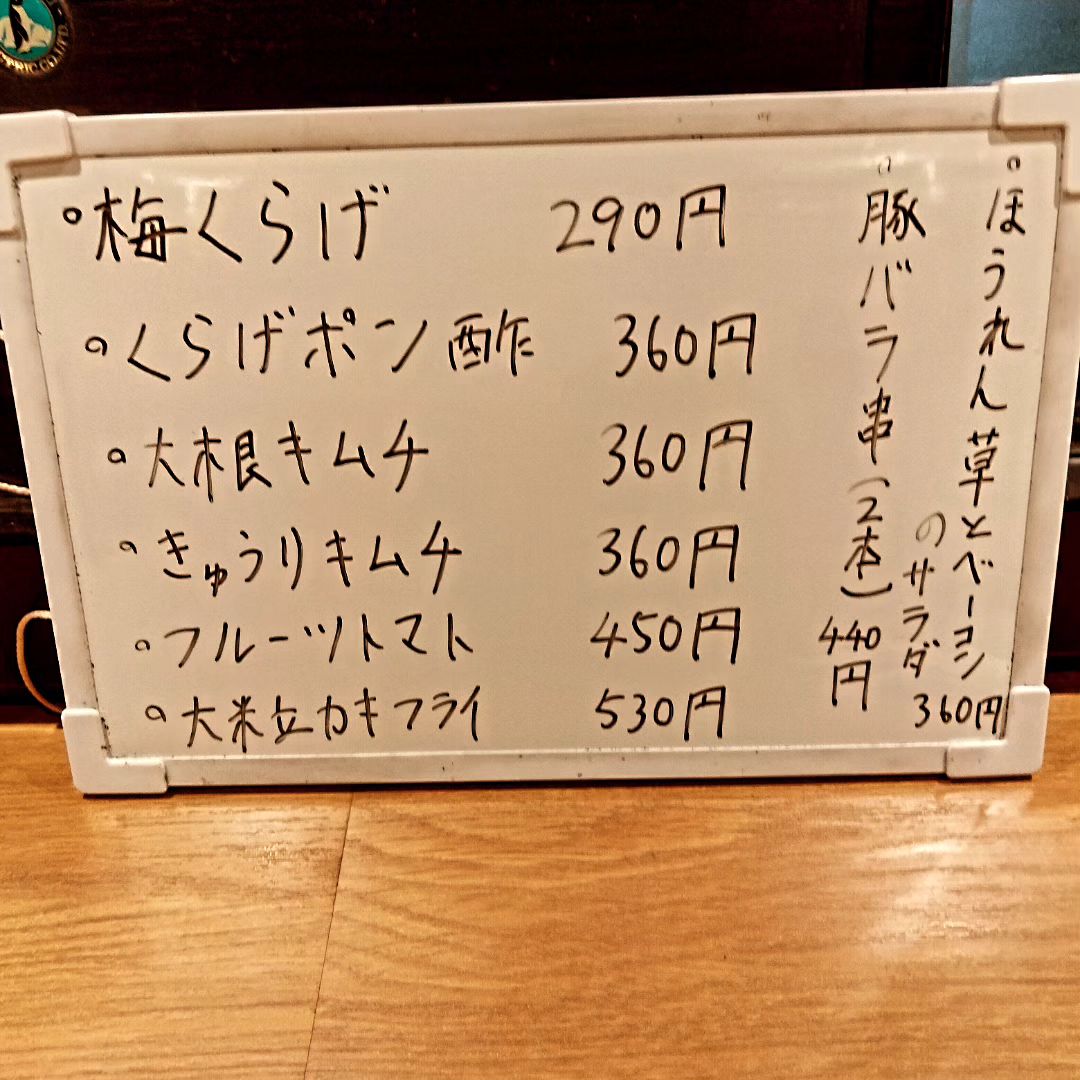 梅くらげ 290円
くらげポン酢 360円
大根キムチ 360円
きゅうりキムチ 360円
フルーツトマト 450円
大粒カキフライ 530円
ほうれん草とベーコン
のサラダ
360円
豚バラ串(2本)
440
円
CO.LTD.